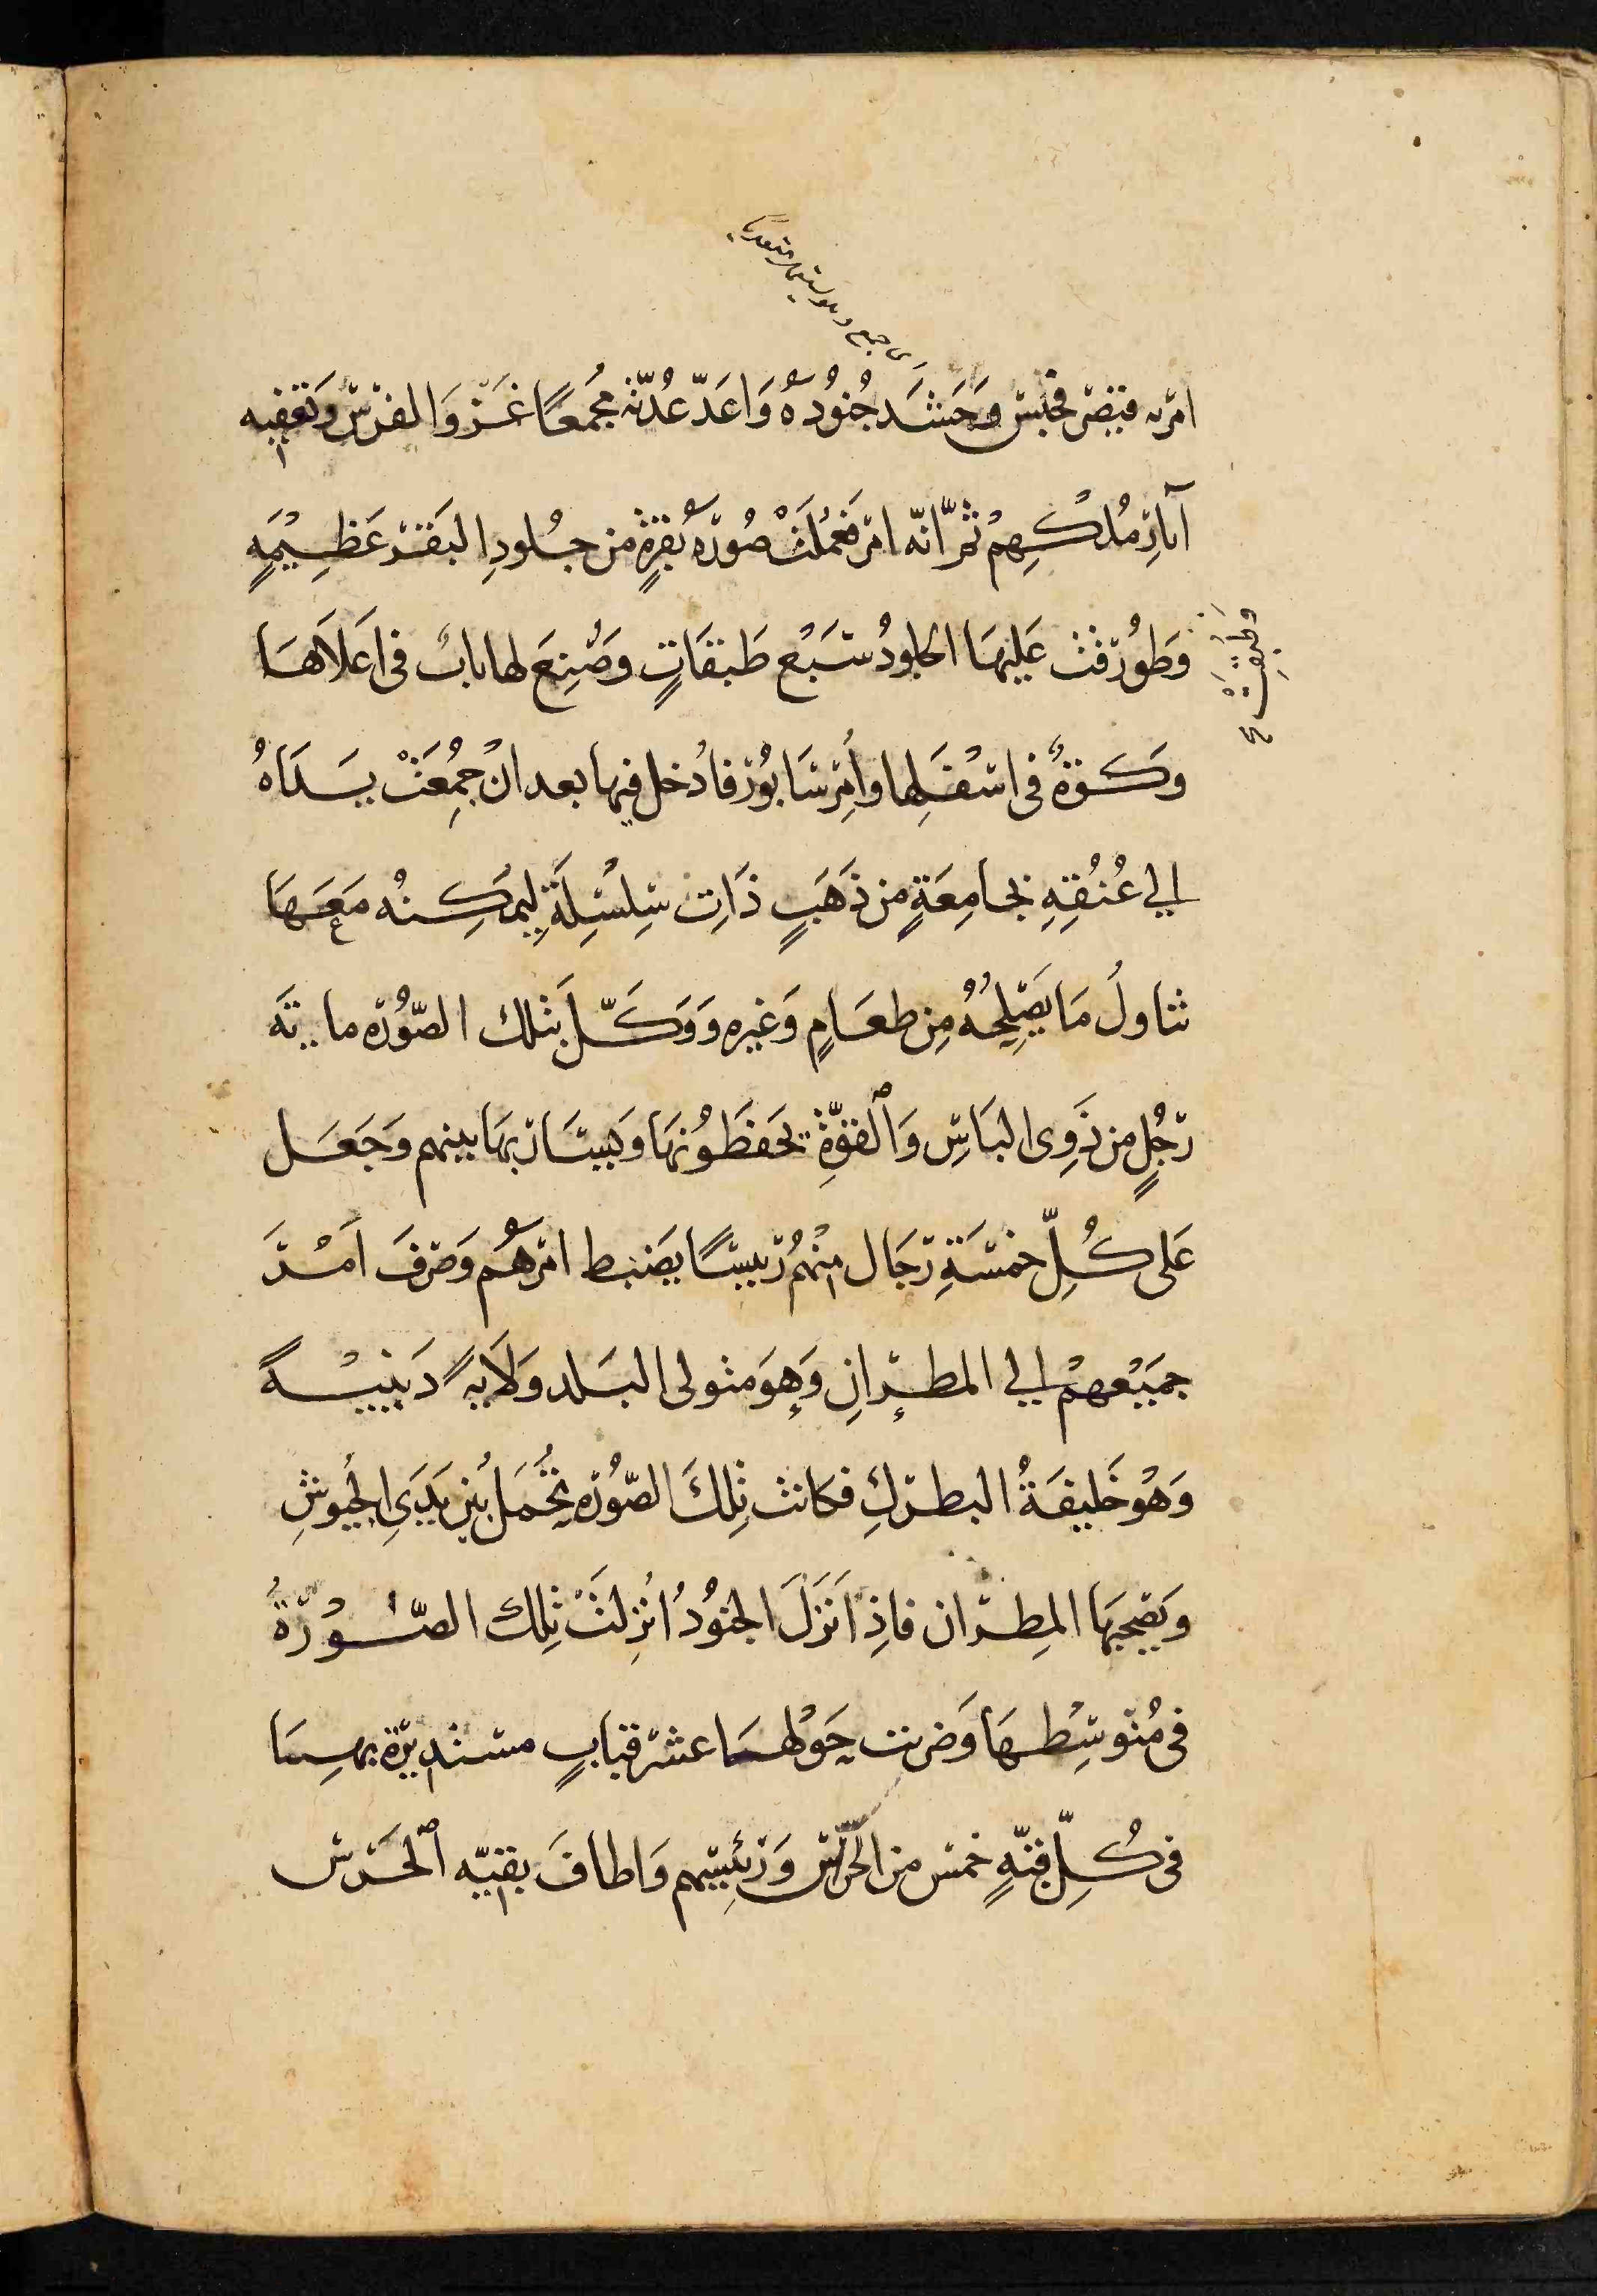 امر به قيصر فحبس وَحَشَد جُنُودَهُ وَاعَدّ عُدّتَه مُجمعًا غَزْوَ الفرْس وَتعفيه
آثارِ مُلْكِهِمْ ثمّ انّه امر فعُملَتْ صُورَة بقرةٍ من جلُودِ البَقر عَظِيْمَةٍ
وَطُورقت عَليهَا الجلودُ سَبْع طَبَقَاتٍ وَصُنِعَ لها بابٌ فى اعَلاهَا
وَكوّةٌ فى اسْفَلِها وأمِر سَابُوْر فادُخل فيها بعد انْ جُمِعَتْ يَدَاهُ
الي عُنُقِهِ بجامِعَةٍ من ذَهَبٍ ذَاتِ سِلْسِلَةٍ يُمكِنُه مَعَهَا
تناولُ مَا يُصْلِحُهُ مِن طعَامٍ وَغيره وَوَكّل بتلك الصّوُرَه مايةَ
رَجُلٍ من ذَوِى البَاسِ وَالْقوّةِ يحَفَظوُنهَا وَيسَارُ بهَا بينهم وَجَعَل
عَلى كُلّ خمْسَةِ رجَال منْهُمْ رئيسًا يَضبط امْرهُم وَصَرفَ امْرَ
جَميْعهمْ الي المطرانِ وَهوَ متولى البَلد وَلَايةً دَينيّةً
وَهُو خَليفَةُ البطرَكِ فكانت تِلكَ الصّوُرَه تُحمَلُ بَين يَدَىِ الجيُوشِ
وَيَصْحبهَا المِطرَان فاذِا نَزَلَ الجنوُدُ انُزِلتْ تِلك الصّوْرَةُ
فى مُتوسّطهَا وَضربت حَوْلهَا عشر قبابٍ مستديرَة بها
فى كُلّ قبّةٍ خمس من الحرّاس وَرَئيسهم وَاطافَ بقبّه الْحَرَس